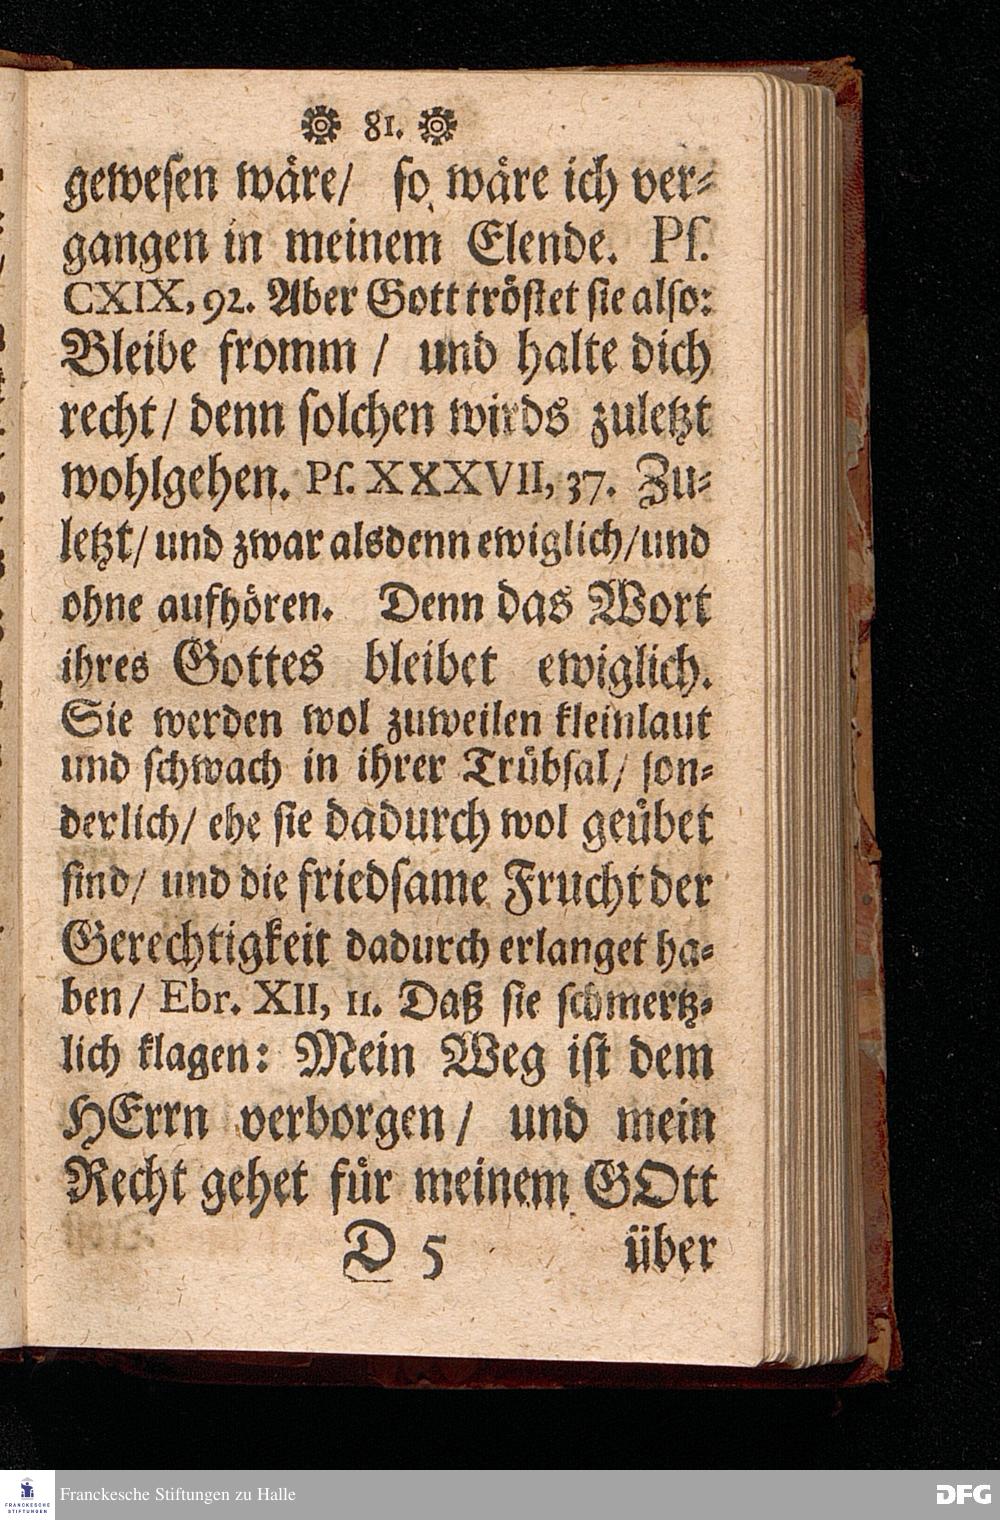 81.
gewesen wäre/ so wäre ich ver-
gangen in meinem Elende. Ps.
CXIX, 92. Aber Gott tröstet sie also:
Bleibe fromm / und halte dich
recht/ denn solchen wirds zuletzt
wohlgehen. Ps. XXXVII, 37. Zu-
letzt/ und zwar alsdenn ewiglich/ und
ohne aufhören. Denn das Wort
ihres Gottes bleibet ewiglich.
Sie werden wol zuweilen kleinlaut
und schwach in ihrer Trübsal/ son-
derlich/ ehe sie dadurch wol geübet
sind/ und die friedsame Frucht der
Gerechtigkeit dadurch erlanget ha-
ben/ Ebr. XII, 11. Daß sie schmertz-
lich klagen: Mein Weg ist dem
HErrn verborgen/ und mein
Recht gehet für meinem GOtt
D 5 über
FRANCKESCHE
STIFTUNGEN
Franckesche Stiftungen zu Halle
DFG